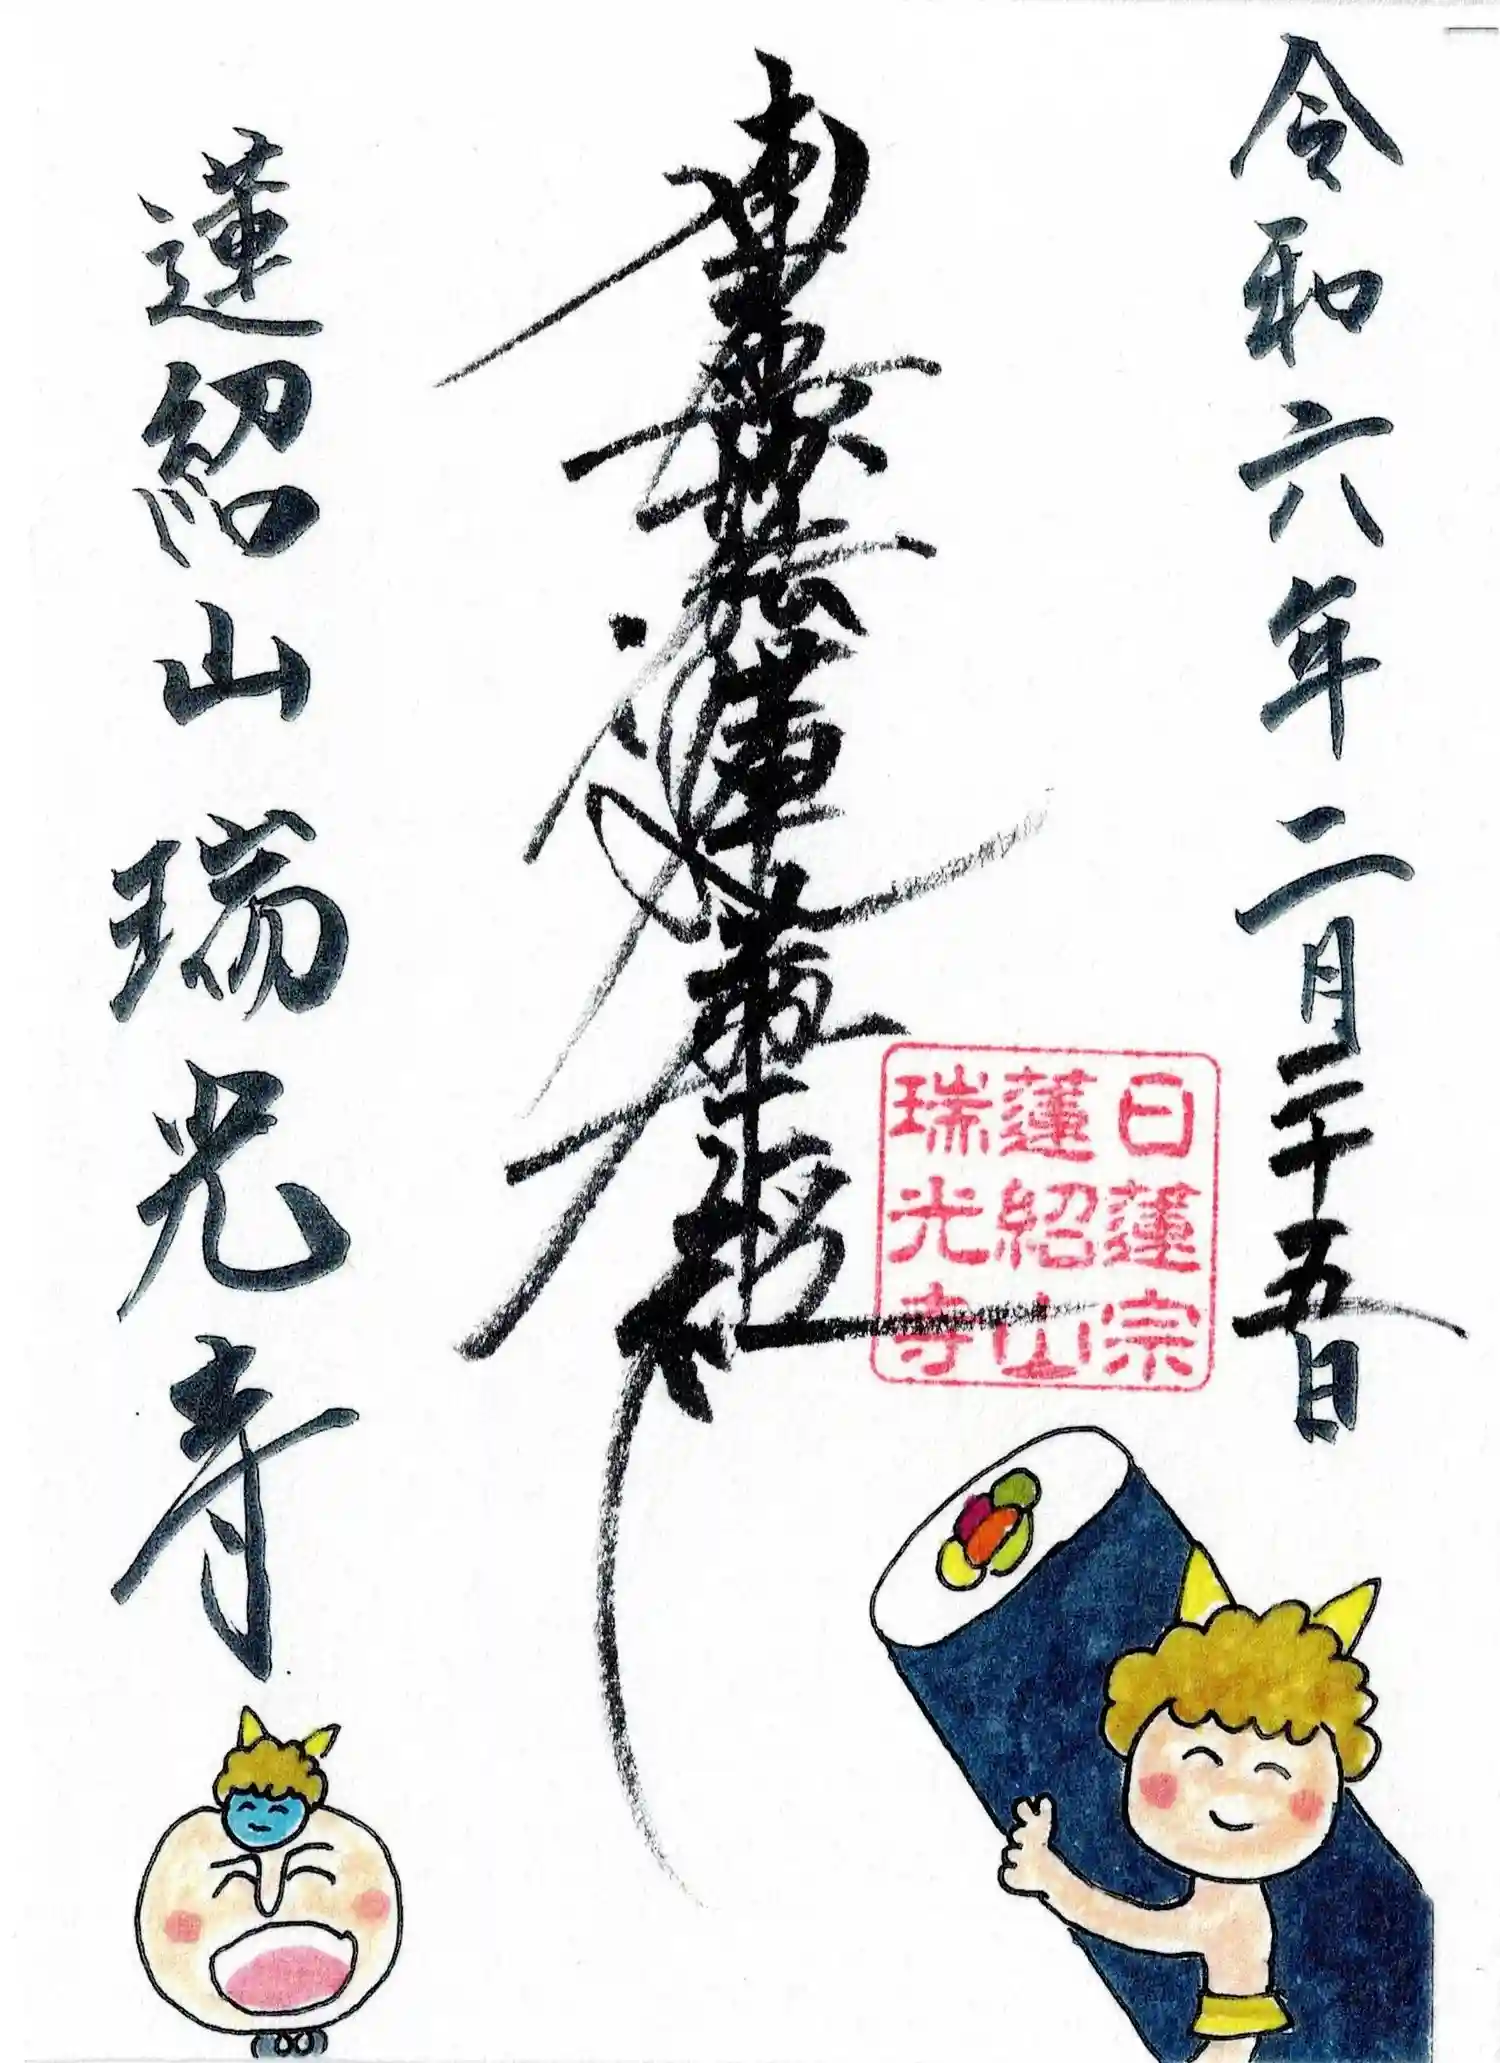 令和六年二月二十五日
南無妙法蓮華経
日蓮宗
蓮紹山
瑞光寺
蓮紹山瑞光寺